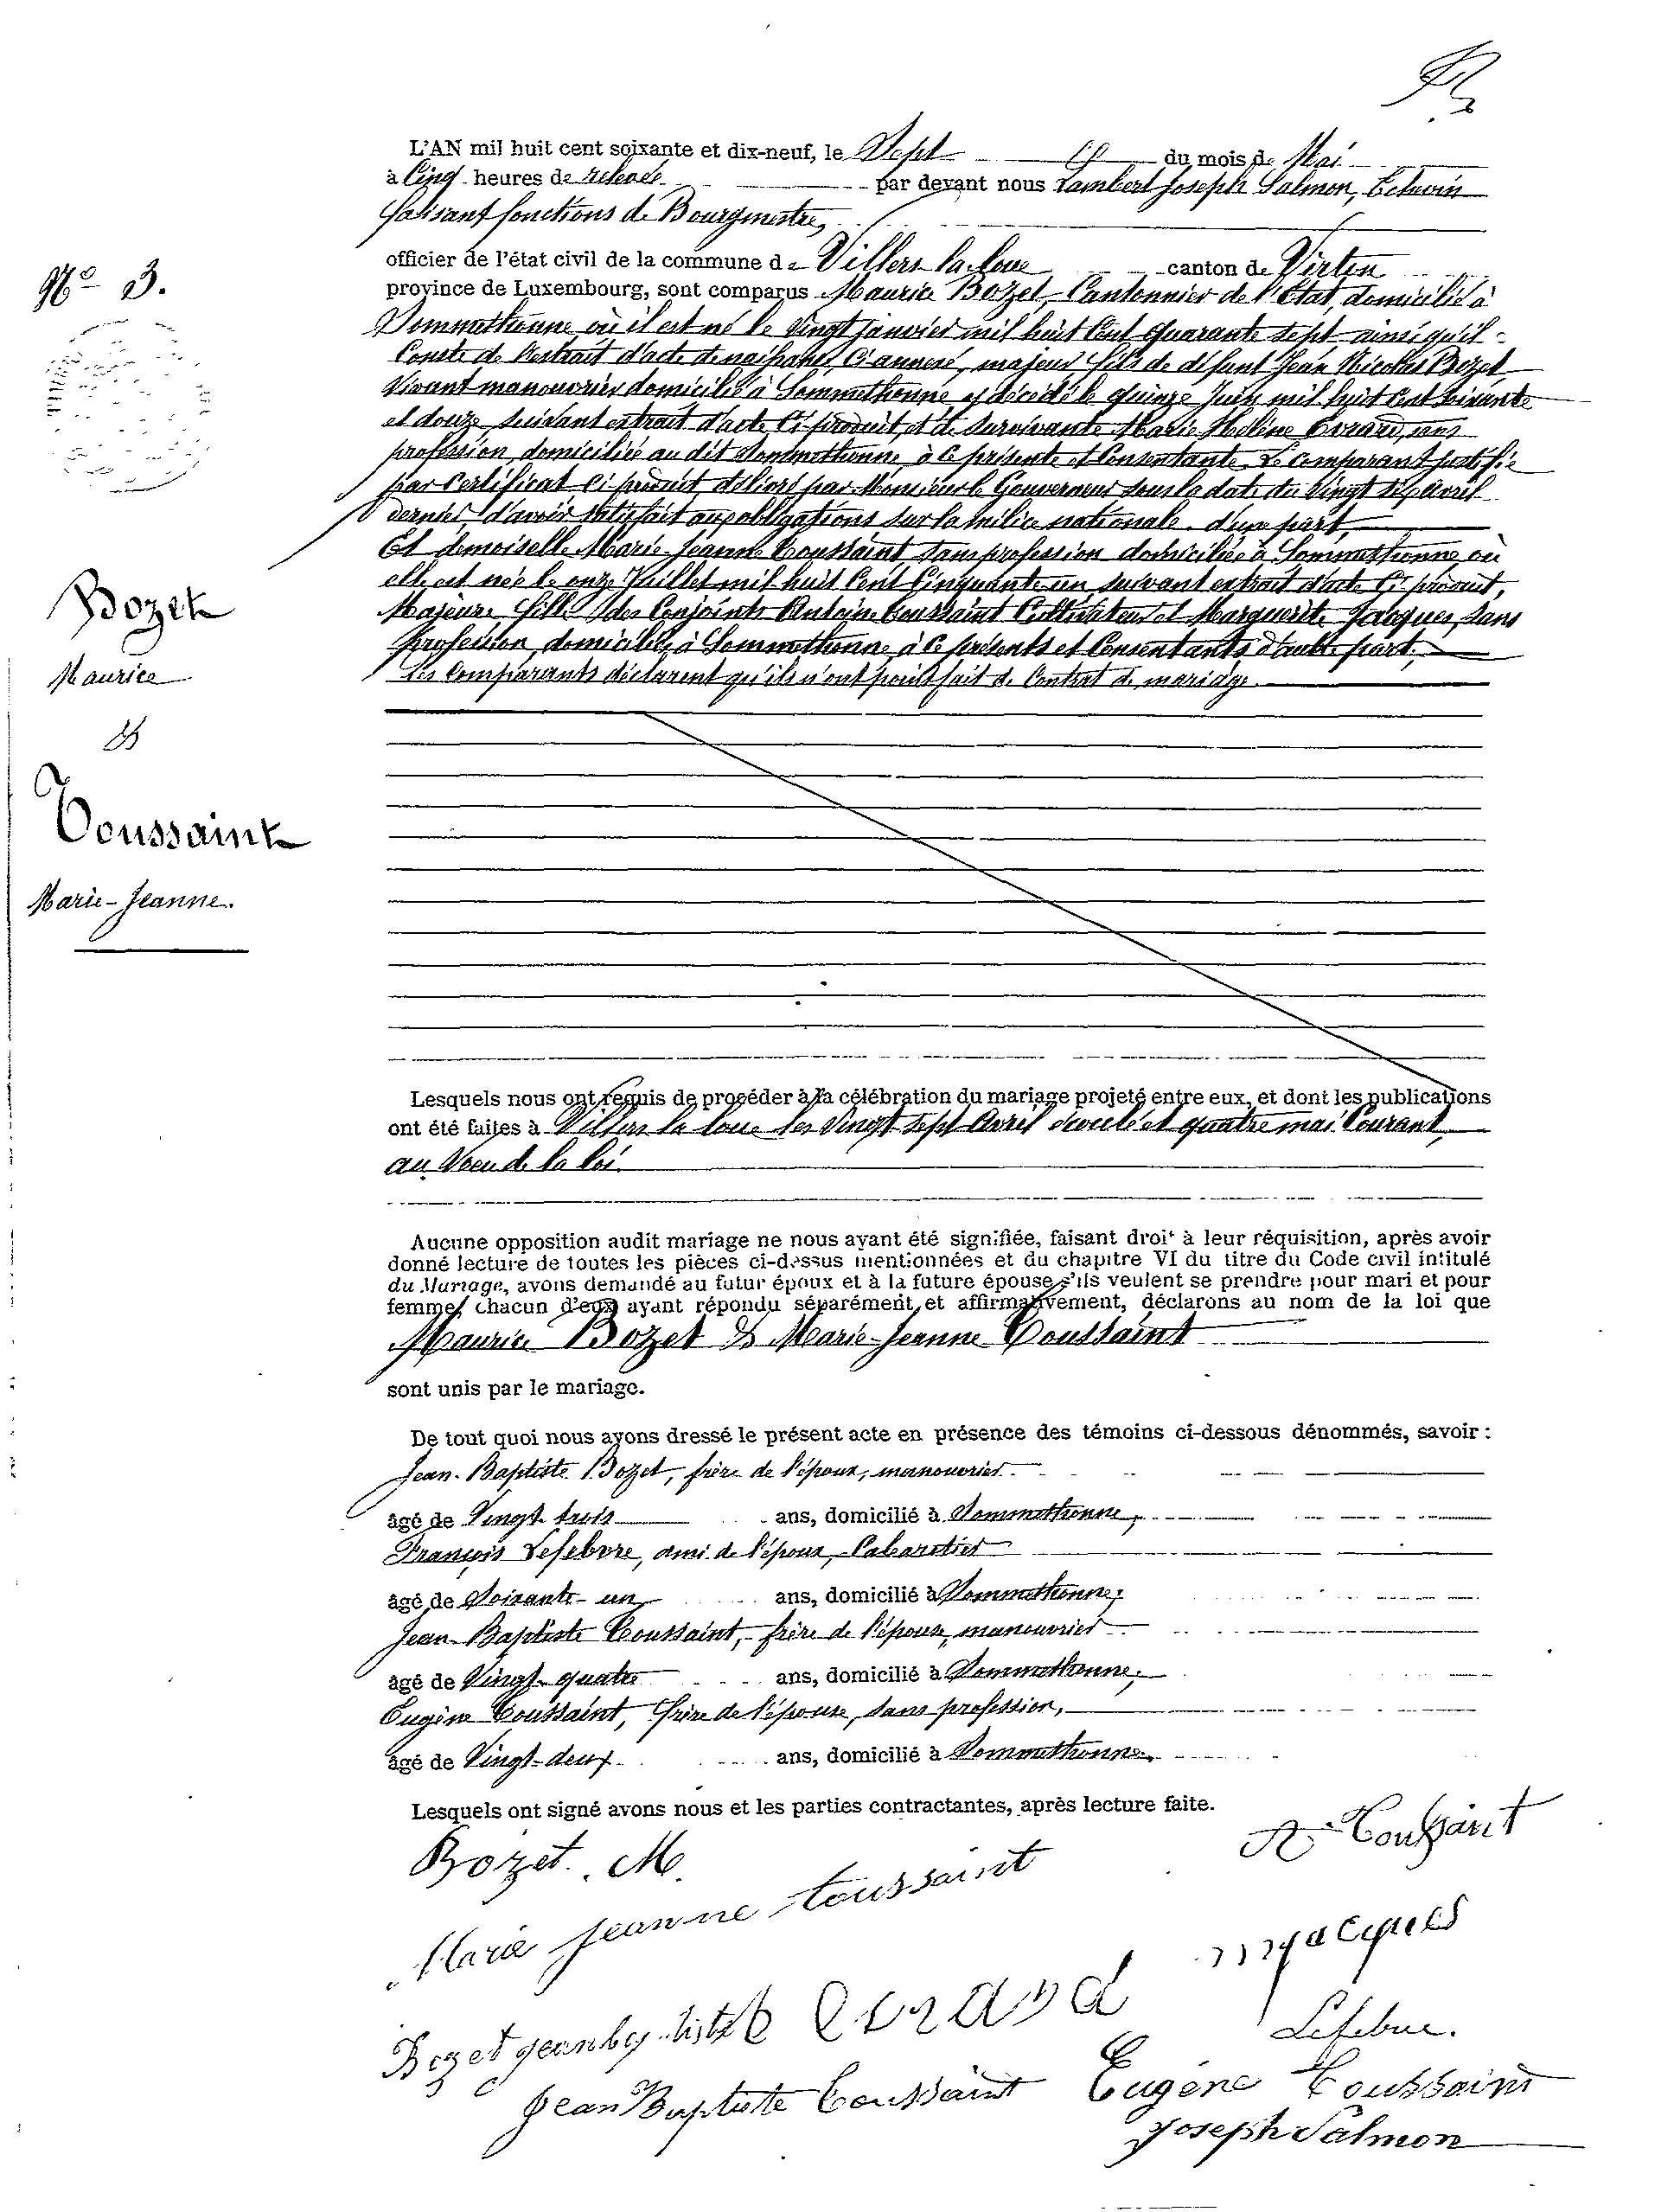 L'AN mil huit cent soixante et dix-neuf, le Sept du mois de Mai
à Cinq heures de relevée par devant nous Lambert Joseph Salmon, Echevin
faisant fonctions de Bourgmestre,
officier de l'état civil de la commune de Villers-la-loue canton de Virton
province de Luxembourg, sont comparus Maurice Bozet, Cantonnier de l'Etat, domicilié à
Sommethonne où il est né le vingt janvier mil huit Cent quarante sept ainsi qu'il
Conste de l'extrait d'acte de naissance Ci annexé, majeur fils de défunt Jean Nicolas Bozet
vivant manouvrier domicilié à Sommethonne et décédé le quinze Juin mil huit Cent soixante
et douze suivant extrait d'acte Ci produit, et de survivante Marie Hélène Evrard, sans
profession, domiciliée au dit Sommethonne, à ce présente et Consentante. Le comparant justifie
par Certificat Ci produit délivré par Monsieur le Gouverneur sous la date du vingt Avril
dernier d'avoir satisfait aux obligations sur la milice nationale. d'une part,
Et demoiselle Marie-Jeanne Toussaint sans profession domiciliée à Sommethonne où
elle est née le onze Juillet mil huit Cent Cinquante un, suivant extrait d'acte Ci produit,
Majeure, fille des Conjoints Antoine Toussaint Cultivateur et Marguerite Jacques, sans
profession, domiciliés à Sommethonne, à Ce présents et Consentants d'autre part,
Les Comparants déclarent qu'ils n'ont point fait de Contrat de mariage.
N° 3.
Bozet
Maurice
&
Toussaint
Marie-Jeanne.
Lesquels nous ont requis de procéder à la célébration du mariage projeté entre eux, et dont les publications
ont été faites à Villers la loue les vingt sept Avril écoulé et quatre mai Courant,
au vœu de la loi.
Aucune opposition audit mariage ne nous ayant été signifiée, faisant droit à leur réquisition, après avoir
donné lecture de toutes les pièces ci-dessus mentionnées et du chapitre VI du titre du Code civil intitulé
du Mariage, avons demandé au futur époux et à la future épouse s'ils veulent se prendre pour mari et pour
femme, chacun d'eux ayant répondu séparément et affirmativement, déclarons au nom de la loi que
Maurice Bozet & Marie-Jeanne Toussaint
sont unis par le mariage.
De tout quoi nous avons dressé le présent acte en présence des témoins ci-dessous dénommés, savoir :
Jean-Baptiste Bozet, frère de l'époux, manouvrier
âgé de Vingt-trois ans, domicilié à Sommethonne,
François Lefebvre, ami de l'époux, Cabaretier
âgé de Soixante-un ans, domicilié à Sommethonne,
Jean-Baptiste Toussaint, frère de l'épouse, manouvrier
âgé de Vingt-quatre ans, domicilié à Sommethonne,
Eugène Toussaint, frère de l'épouse, sans profession,
âgé de Vingt-deux ans, domicilié à Sommethonne,
Lesquels ont signé avons nous et les parties contractantes, après lecture faite.
Bozet. M.
A. Toussaint
Marie Jeanne toussaint
m jacques
Bozet jean baptiste
Evrard
Lefebvre.
Jean Baptiste Toussaint
Eugène Toussaint
Joseph Salmon